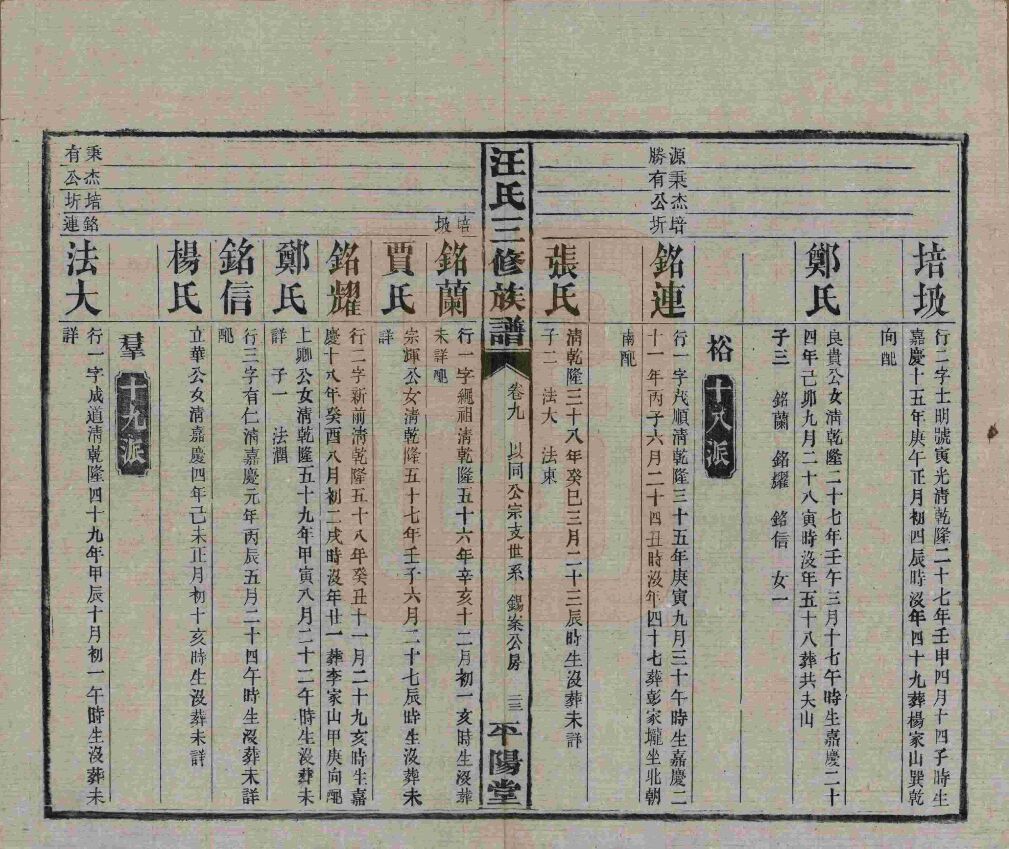 培圾
行二字士明號寅光清乾隆二十七年壬申四月十四子時生
嘉慶十五年庚午正月初四辰時沒年四十九葬楊家山巽乾
向配
鄭氏
良貴公女清乾隆二十七年壬午三月十七午時生嘉慶二十
四年己卯九月二十八寅時沒年五十八葬共夫山
子三 銘蘭 銘耀 銘信 女一
裕
十八派
源秉杰培
勝有公圻
銘連
行一字茂順清乾隆三十五年庚寅九月三十午時生嘉慶二
十一年丙子六月二十四丑時沒年四十七葬彭家壠坐北朝
南配
張氏
清乾隆三十八年癸巳三月二十三辰時生沒葬未詳
子二 法大 法東
汪氏三修族譜
卷九
以同公宗支世系 錫案公房
三三
平陽堂
培
圾
銘蘭
行一字繩祖清乾隆五十六年辛亥十二月初一亥時生沒葬
未詳配
賈氏
宗輝公女清乾隆五十七年壬子六月二十七辰時生沒葬未
詳
銘耀
行二字新前清乾隆五十八年癸丑十一月二十九亥時生嘉
慶十八年癸酉八月初二戌時沒年廿一葬李家山甲庚向配
鄭氏
上卿公女清乾隆五十九年甲寅八月二十二午時生沒葬未
詳 子一 法潤
銘信
行三字有仁清嘉慶元年丙辰五月二十四午時生沒葬未詳
配
楊氏
立華公女清嘉慶四年己未正月初十亥時生沒葬未詳
羣
十九派
秉杰培銘
有公圻連
法大
行一字成道清乾隆四十九年甲辰十月初一午時生沒葬未
詳